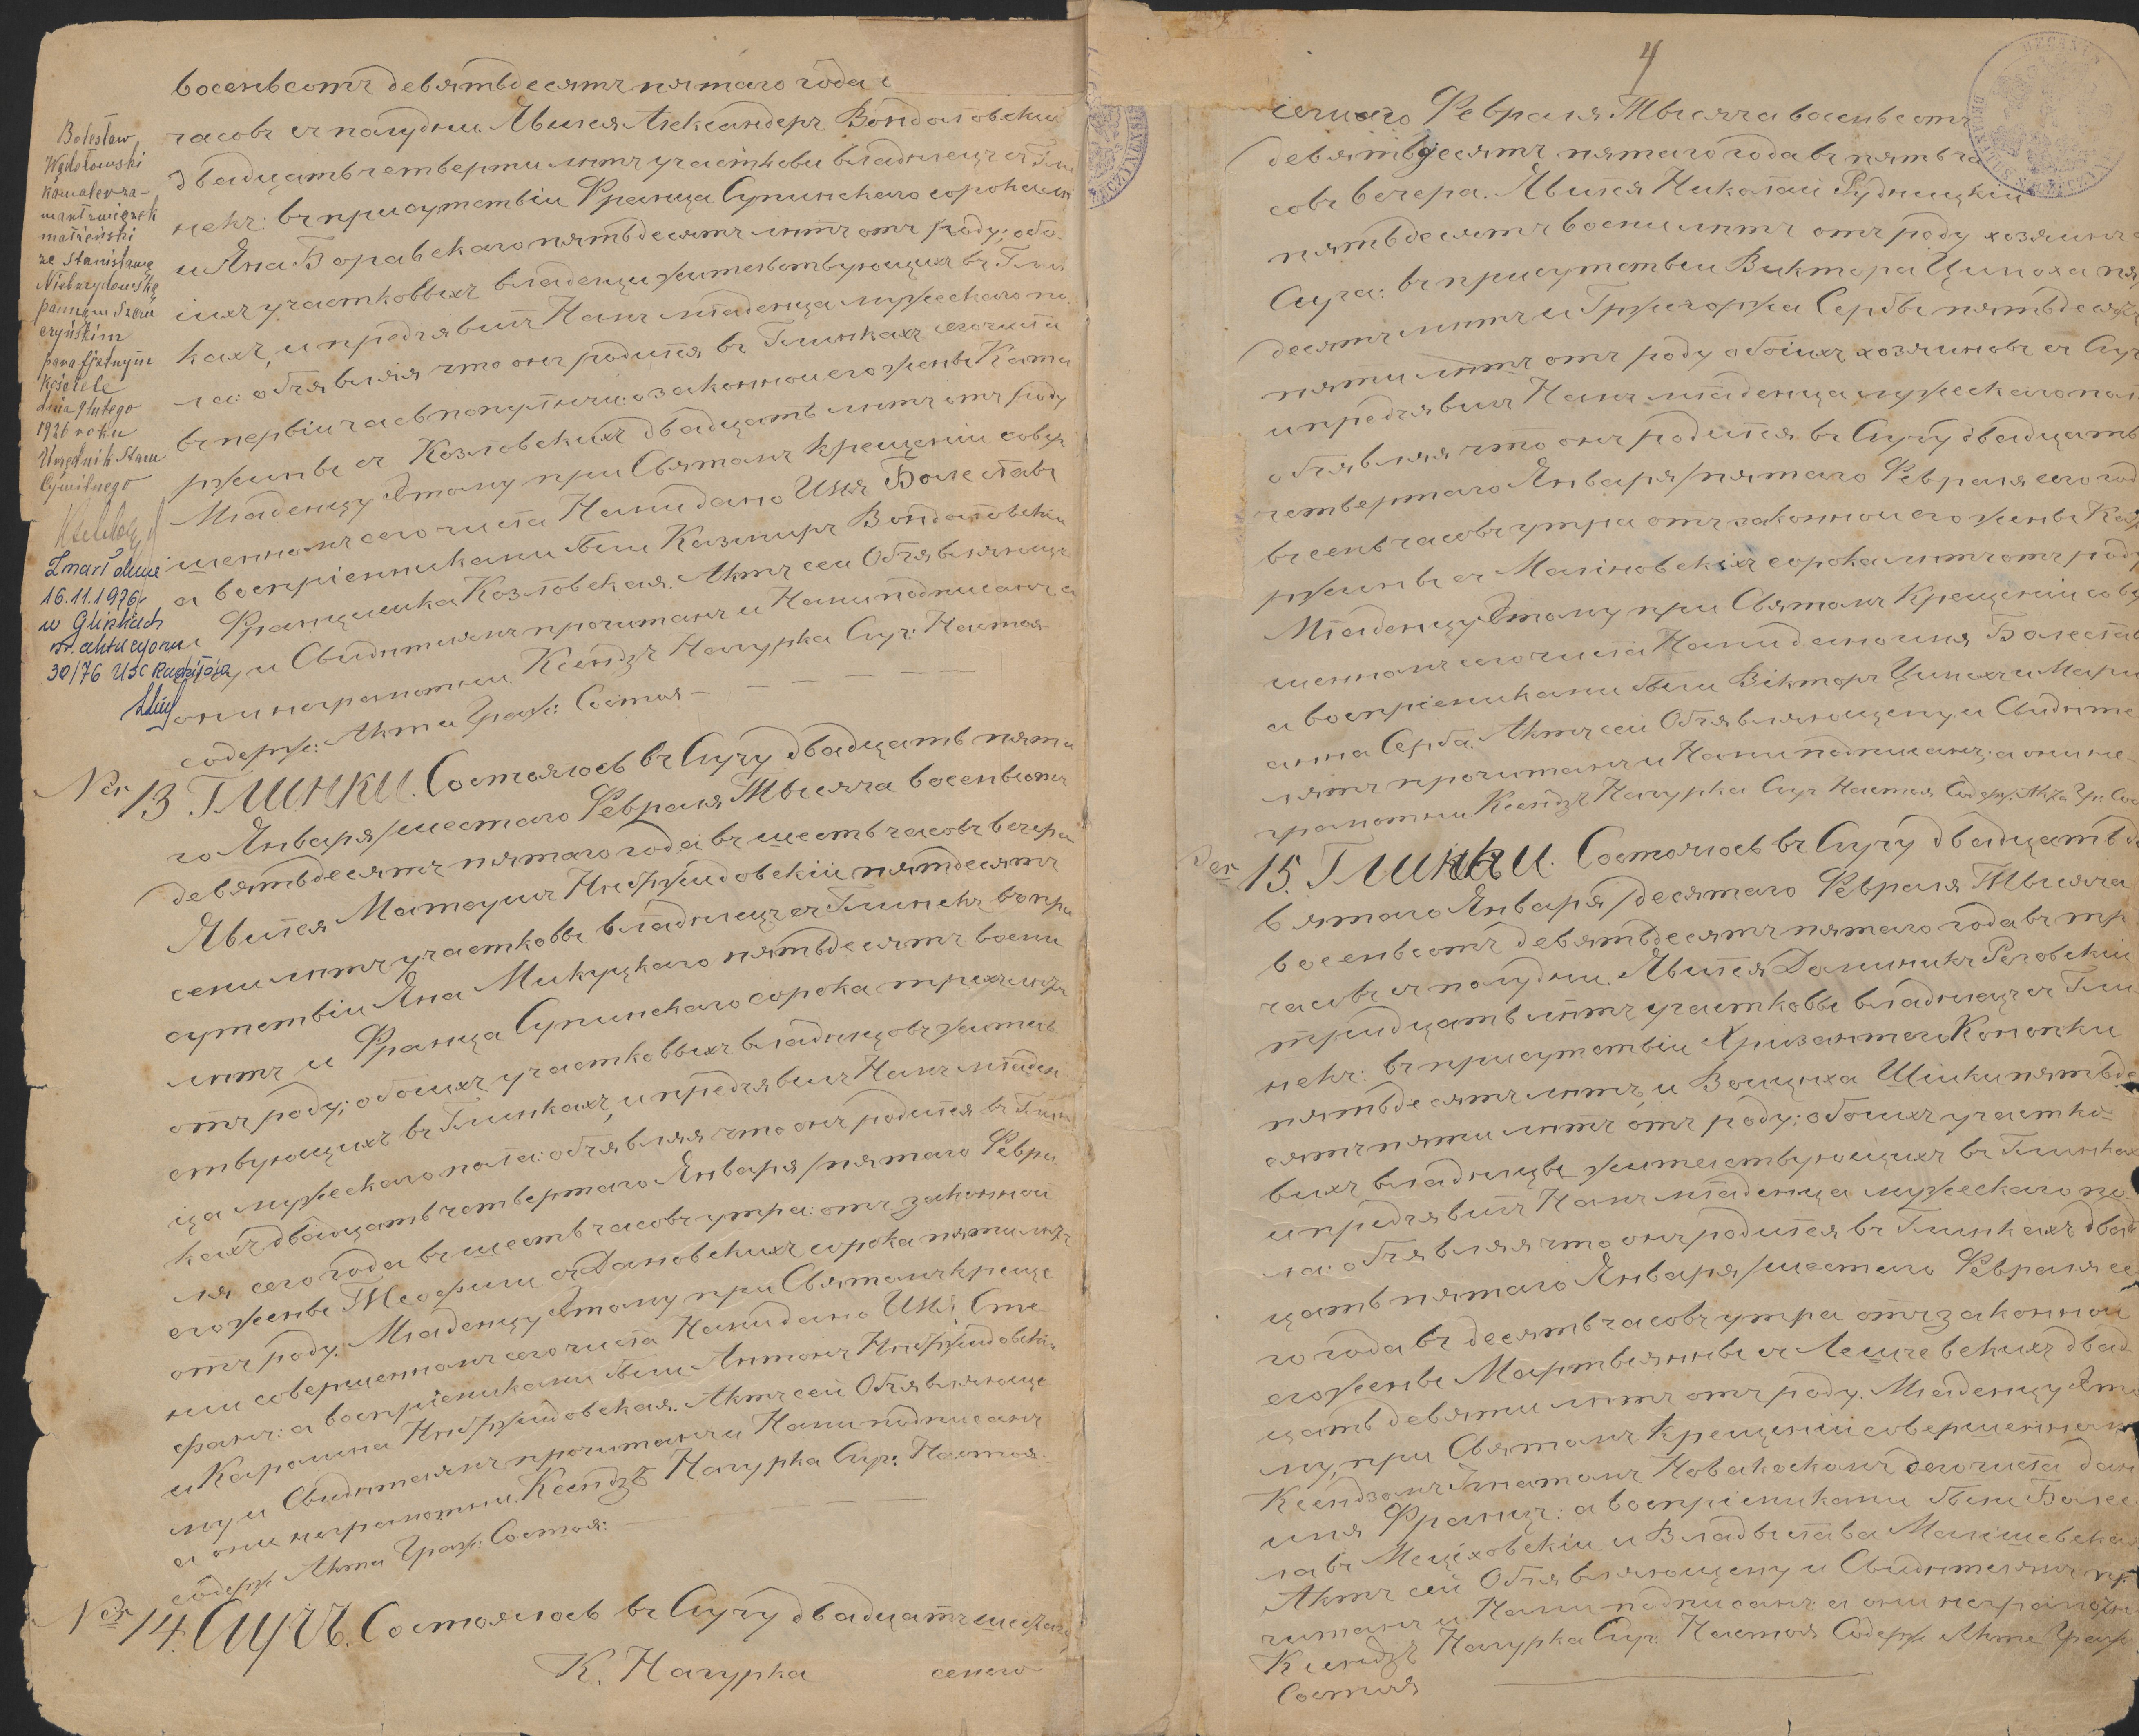 восемьсотъ девятьдесятъ пятаго года
часовъ съ полудни. Явился Александеръ Вондоловскій
двадцать четверти лѣтъ участковы владѣлецъ съ Гли
некъ: въ присутствіи Франца Супинскаго сорока
и Яна Боравскаго пятьдесятъ лѣтъ отъ роду; обо
ихъ участковыхъ владѣльцы жительствующихъ въ Глин
кахъ, и предъявилъ Намъ младенца мужескаго по
ла: объявляя что онъ родился въ Глинкахъ сего числа
въ первыи часъ пополуночи: о законнои его жены Ката
ржины съ Козловскихъ двадцать лѣтъ отъ роду
Младенцу Этому при Святомъ Крещеніи совер
шенномъ сего числа Нами дано Имя Болеславъ
а воспріемниками были Казимиръ Вондоловскіи
и Францишка Козловская. Актъ сей Объявляюще
му и Свидѣтелямъ прочитанъ и Нами подписанъ а
они неграмотни. Ксендзъ Нагурка Суч: Настоя
содерж: Акта Граж: Состоя
Bolesław
Wądołowski
kawaler za-
warł związek
małżeński
ze Stanisławą
Niebrzydowską
panną w Szczu
czyńskim
parafjalnym
kościele
dnia 9 lutego
1926 roku
Urzędnik Stanu
Cywilnego
Zmarł dnia
16.11.1976r
w Glinkach
nr. aktu zgonu
30/76 USC Radziłów
Nер 13 ГЛИНКИ. Состоялось въ Сучу двадцать пята
го Января/шестаго Февраля Тысяча восемьсотъ
девятьдесятъ пятаго года въ шесть часовъ вечера
Явился Матоушъ Нѣбржидовскіи пятдесятъ
семи лѣтъ участковы владѣлецъ съ Глинекъ въ при
сутствіи Яна Микуцкаго пятьдесятъ восми
лѣтъ и Франца Супинскаго сорока трехъ лѣтъ
отъ роду; обоихъ участковыхъ владѣльцовъ житель
ствующихъ въ Глинкахъ, и предъявилъ Намъ младен
ца мужескаго пола: объявляя что онъ родился въ Глин
кахъ двадцать четвертаго Января/пятаго Февра
ля сего года въ шесть часовъ утра: отъ законной
его жены Теофили съ Дановскихъ сорока пяти лѣтъ
отъ роду. Младенцу Этому при Святомъ Креще
ніи совершенномъ сего числа Нами дано Имя Сте
фанъ: а воспріемниками были Антонъ Нѣбржидовскіи
и Каролина Нѣбржидовская. Актъ сей Объявляюще
му и Свидѣтелямъ прочитанъ и Нами подписанъ
а они неграмотни. Ксендзъ Нагурка Суч: Настоя
содерж Акта Граж: Состоя:
Nер 14. СУЧЪ. Состоялось въ Сучу двадцать шестаго
К. Нагурка семаго
4
семаго Февраля Тысяча восемьсотъ
девятьдесятъ пятаго года въ пять ча
совъ вечера. Явился Николаи Рудницкіи
пятьдесятъ восми лѣтъ отъ роду хозяинъ с
Суча: въ присутствіи Виктора Цимоха пя
десятъ лѣтъ и Гржегоржа Сербы пятьдесятъ
пяти лѣтъ отъ роду обоихъ хозяиновъ съ Суч
и предъявилъ Намъ младенца мужескаго пол
объявляя что онъ родился въ Сучу двадцать
четвертаго Января/пятаго Февраля сего год
въ семь часовъ утра отъ законнои его жены Ка
ржины съ Малиновскихъ сорока лѣтъ отъ роду
Младенцу Этому при Святомъ Крещеніи сове
шенномъ сего числа Нами дано имя Болеслав
а воспріемниками были Викторъ Цимохъ и Мари
анна Серба. Актъ сей Объявляющему и Свидѣте
лямъ прочитанъ и Нами подписанъ; а они не
грамотни Ксендзъ Нагурка Суч Настоя Содерж. Акта Гр. Сос
Nер 15. ГЛИНКИ. Состоялось въ Сучу двадцать де
вятаго Января/десятаго Февраля Тысяча
восемьсотъ девятьдесятъ пятаго года въ тр
часовъ съ полудни. Явился Доминикъ Роговскіи
тридцать лѣтъ участковы владѣлецъ съ Гли
некъ: въ присутствіи Хризантего Конопки
пятьдесятъ лѣтъ, и Воицѣха Шлики пятьде
сятъ пяти лѣтъ отъ роду; обоихъ участко
выхъ владѣльцы жительствующихъ въ Глинках
и предъявилъ Намъ младенца мужескаго по
ла: объявляя что онъ родился въ Глинкахъ двад
цать пятаго Января/шестаго Февраля се
го года въ десять часовъ утра отъ законнои
его жены Мартьянны съ Лешчевскихъ двад
цать девяти лѣтъ отъ роду. Младенцу Это
му, при Святомъ Крещеніи совершенномъ
Ксендзомъ Игнатомъ Новакоскомъ сего числа дан
имя Францъ: а воспріемниками были Болес
лавъ Мецѣховскіи и Владыслава Малишевска
Актъ сей Объявляющему и Свидѣтелямъ пр
читанъ и Нами подписанъ а они неграмотн
Ксендзъ Нагурка Суч: Настоя Содерж Акта Граж
Состоя